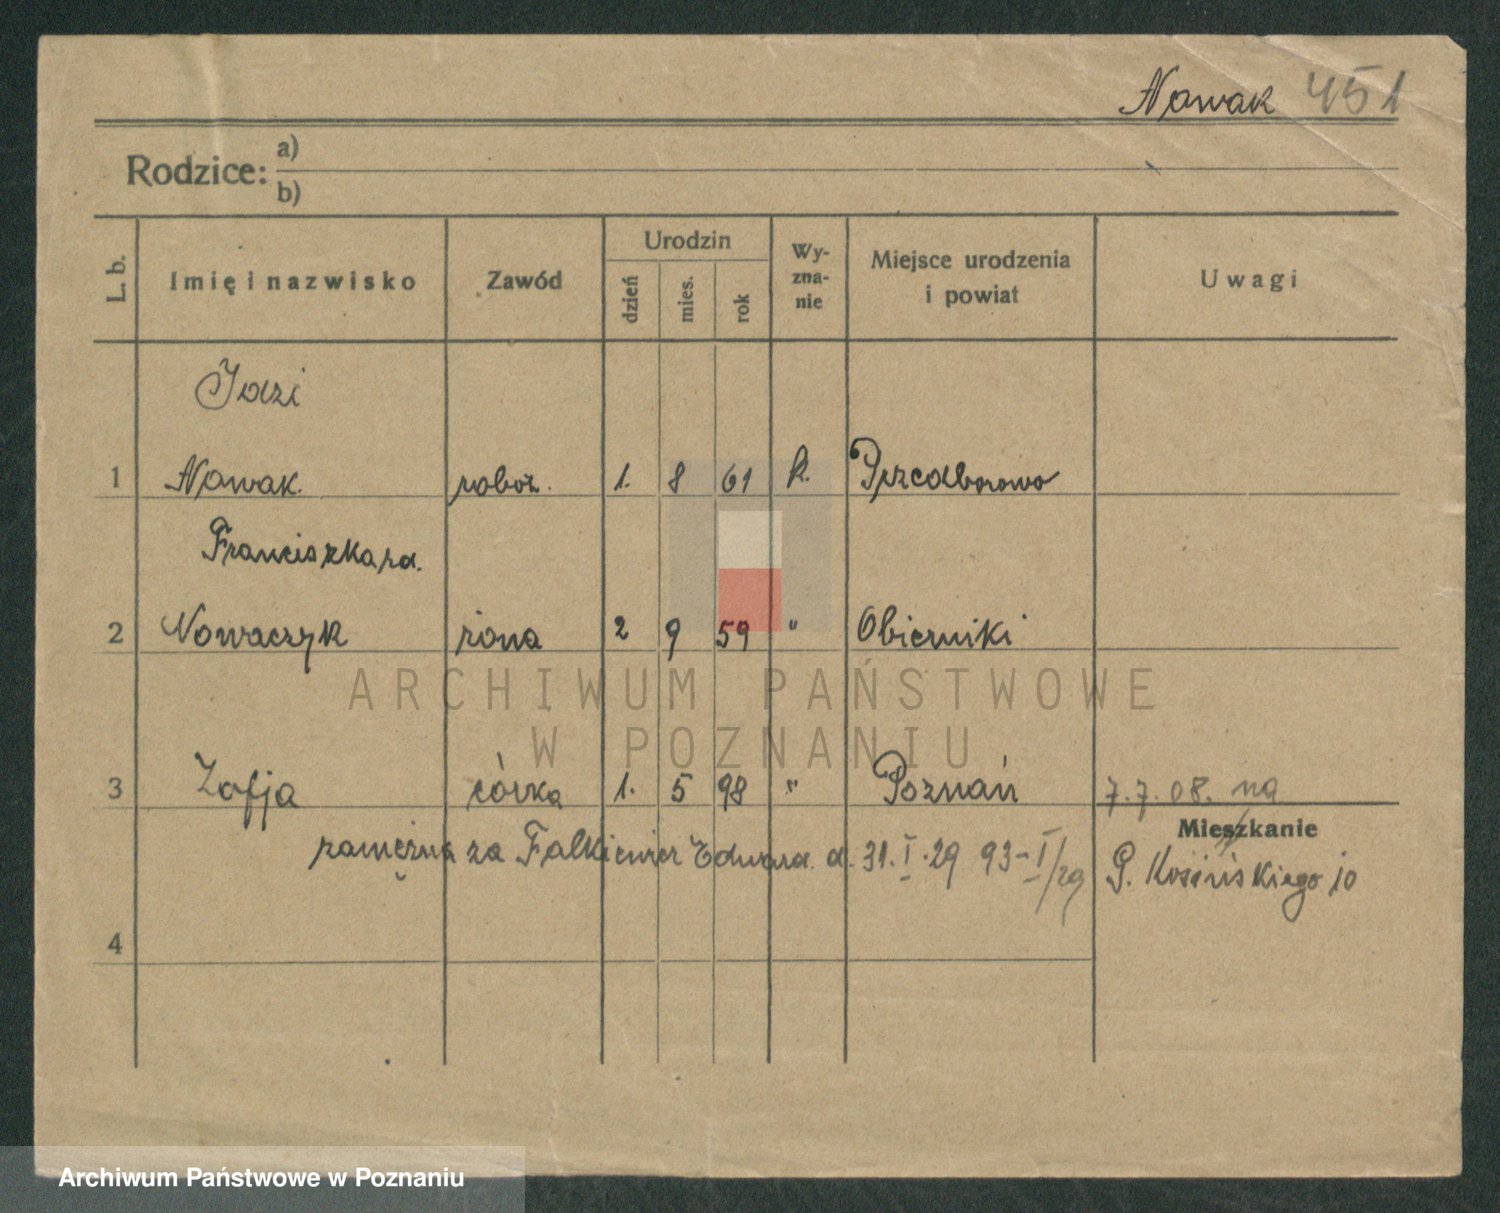 Nowak 451
Rodzice: a)
b)
L. b. Imię i nazwisko Zawód Urodzin dzień mies. rok Wy-zna-nie Miejsce urodzenia i powiat Uwagi
Idzi
1 Nowak. robot. 1. 8 61 k. Przedborowo
Franciszka rd.
2 Nowaczyk żona 2 9 59 " Obierniki
ARCHIWUM PAŃSTWOWE
W POZNANIU
3 Zofja córka 1. 5 98 " Poznań 7.7.08. na
Mieszkanie
zamężna za Falkiewicz Edward. d. 31.I.29 93-I/29 G. Kosińskiego 10
4
Archiwum Państwowe w Poznaniu